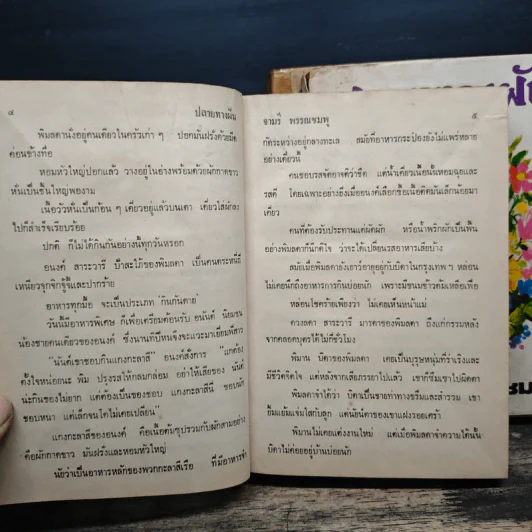 ๔ ปลายทางฝัน
พิมลดานั่งอยู่คนเดียวในครัวเก่า ๆ ปอกมันฝรั่งด้วยมีด
ค่อนข้างทื่อ
หอมหัวใหญ่ปอกแล้ว วางอยู่ในอ่างพร้อมด้วยผักกาดขาว
หั่นเป็นชิ้นใหญ่พองาม
เนื้อวัวหั่นเป็นก้อน ๆ เคี่ยวอยู่แล้วบนเตา เดี๋ยวใส่ผักลง
ไปก็สำเร็จเรียบร้อย
ปกติ ก็ไม่ได้กินกันอย่างนี้ทุกวันหรอก
อนงค์ สาระวารี ป้าสะใภ้ของพิมลดา เป็นคนตระหนี่ถี่
เหนียวจุกจิกจู้จี้และปากร้าย
อาหารทุกมื้อ จะเป็นประเภท 'กินกันตาย'
วันนี้มีอาหารพิเศษ ก็เพื่อเตรียมต้อนรับ อนันต์ นิยมชน
น้องชายคนเดียวของอนงค์ ซึ่งนานทีปีหนจึงจะแวะมาเยี่ยมพี่สาว
"นันต์เขาชอบกินแกงกะลาสี" อนงค์สั่งการ "แกต้อง
ตั้งใจหน่อยนะ พิม ปรุงรสให้กลมกล่อม อย่าให้เสียของ นันต์
น่ะกินของไม่ยาก แต่ต้องเป็นของชอบ แกงกะลาสีนี่ ชอบนัก
ชอบหนา แต่เล็กจนโตไม่เคยเปลี่ยน"
แกงกะลาสีของอนงค์ คือเนื้อต้มซุปรวมกับผักสามอย่าง
คือผักกาดขาว มันฝรั่งและหอมหัวใหญ่
นัยว่าเป็นอาหารหลักของพวกกะลาสีเรือ ที่มีอาหารจำ
จามรี พรรณชมพู ๕
กัดระหว่างอยู่กลางทะเล สมัยที่อาหารกระป๋องยังไม่แพร่หลาย
อย่างเดี๋ยวนี้
คนชอบรสจัดอาจติว่าจืด แต่น้ำเคี่ยวเนื้อนั้นหอมฉุยและ
รสดี โดยเฉพาะอย่างยิ่งเมื่ออนงค์เลือกซื้อเนื้อติดมันเล็กน้อยมา
เคี่ยว
คนที่ต้องรับประทานแต่ผัดผัก หรือน้ำพริกผักเป็นพื้น
อย่างพิมลดาก็นึกดีใจ ว่าจะได้เปลี่ยนรสอาหารเสียบ้าง
สมัยเมื่อพิมลดายังเยาว์อาศัยอยู่กับบิดาในกรุงเทพ ฯ หล่อน
ไม่เคยนึกถึงอาหารการกินบ่อยนัก เพราะมีขนมข้าวต้มเหลือเฟือ
หล่อนโชคร้ายเพียงว่า ไม่เคยเห็นหน้าแม่
ดวงลดา สาระวารี มารดาของพิมลดา ถึงแก่กรรมหลัง
จากคลอดบุตรได้ไม่กี่ชั่วโมง
พิมาน บิดาของพิมลดา เคยเป็นบุรุษหนุ่มที่ร่าเริงและ
มีชีวิตชีวา แต่หลังจากเสียภรรยาไปแล้ว เขาก็ซึมเซาไปผิดตา
พิมลดาจำได้ว่า บิดาเป็นชายท่าทางขรึมและสำรวม เขา
ยิ้มแย้มแจ่มใสกับลูก แต่นัยน์ตาของเขาแฝงรอยเศร้า
พิมานไม่เคยแต่งงานใหม่ แต่เมื่อพิมลดาจำความได้นั้น
บิดาไม่ค่อยอยู่บ้านบ่อยนัก